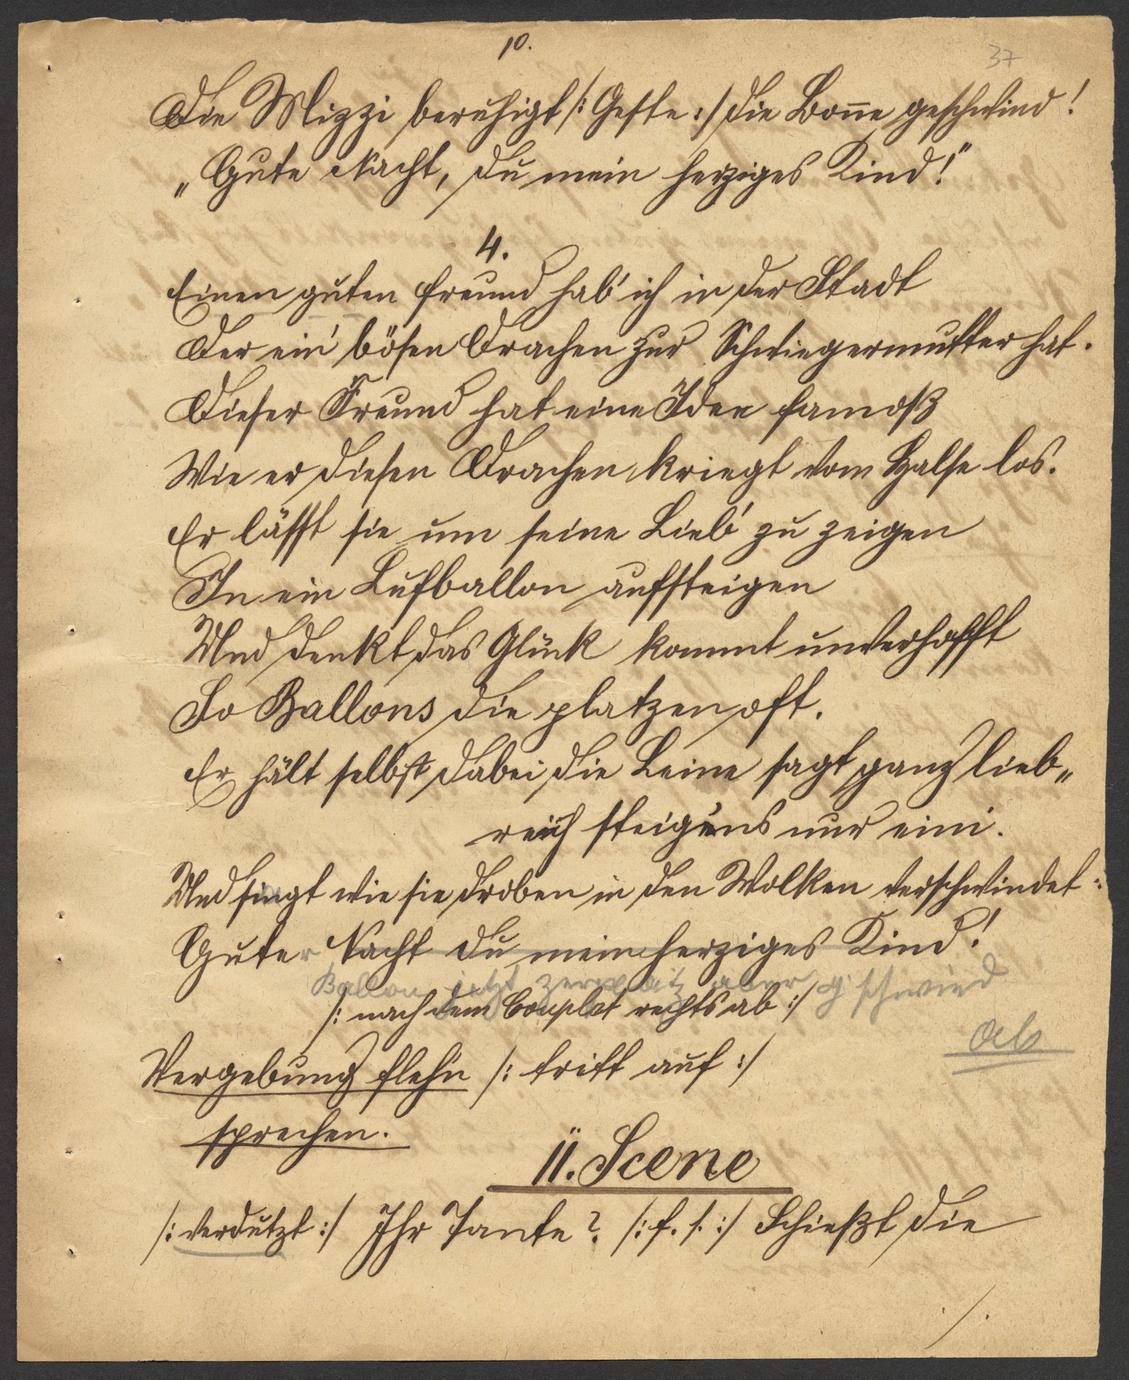 10.
37
Die Mizzi beruhigt /: Geste :/ die Bonne geschwind!
„Gute Nacht, du mein herziges Kind!"
4.
Einen guten Freund hab' ich in der Stadt
Der ein' bösen Drachen zur Schwiegermutter hat.
Dieser Freund hat eine Idee famoß
Wie er diesen Drachen kriegt vom Halse los.
Er läßt sie um seine Lieb' zu zeigen
In ein Lufballon aufsteigen
Und denkt das Glück kommt unverhofft
So Ballons die platzen oft.
Er hält selbst dabei die Leine sagt ganz lieb„
reich steigens nur eini.
Und singt wie sie droben in den Wolken verschwindet:
Guter Nacht du mein herziges Kind!
Ballon jetzt zerplatz aber g'schwind
/: nach dem Couplet rechts ab :/
ab
Vergebung fleh'n /: tritt auf :/
sprechen.
II. Scene
/: verdutzt :/ Ihr Tante? /: f. s. :/ Schießt die
/.